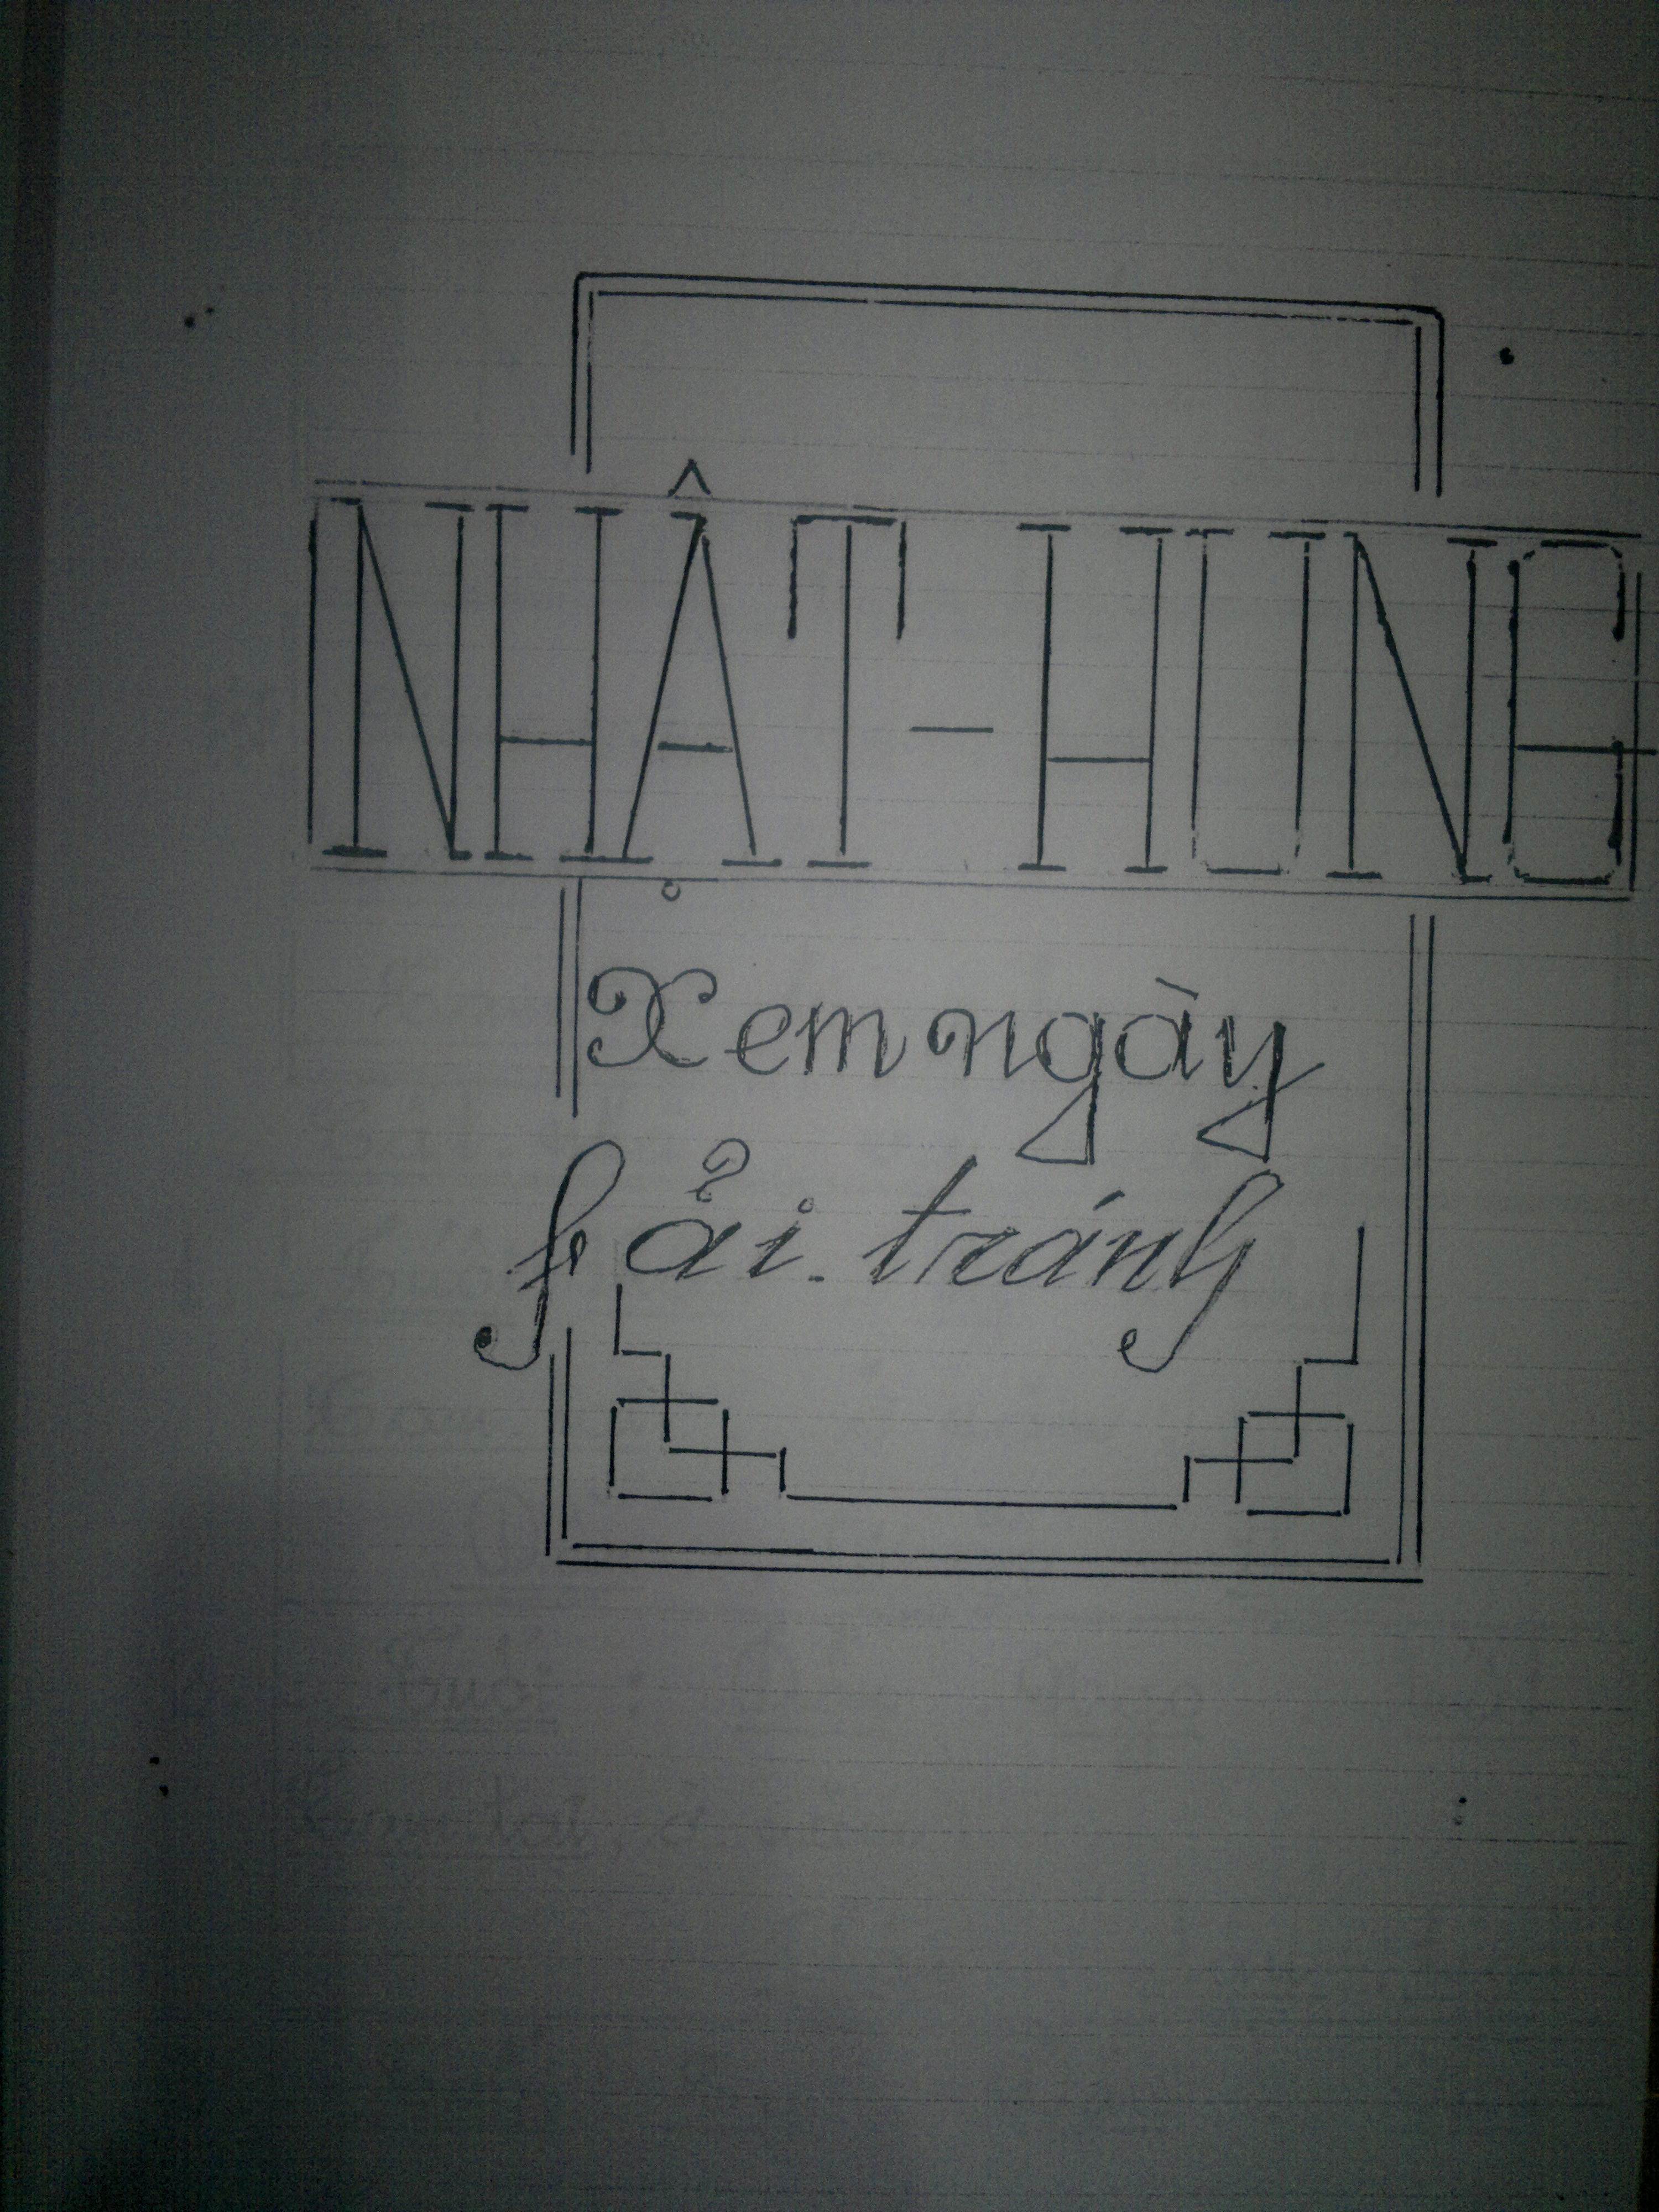 NHẬT-HUNG
Xem ngày
fải. tránh